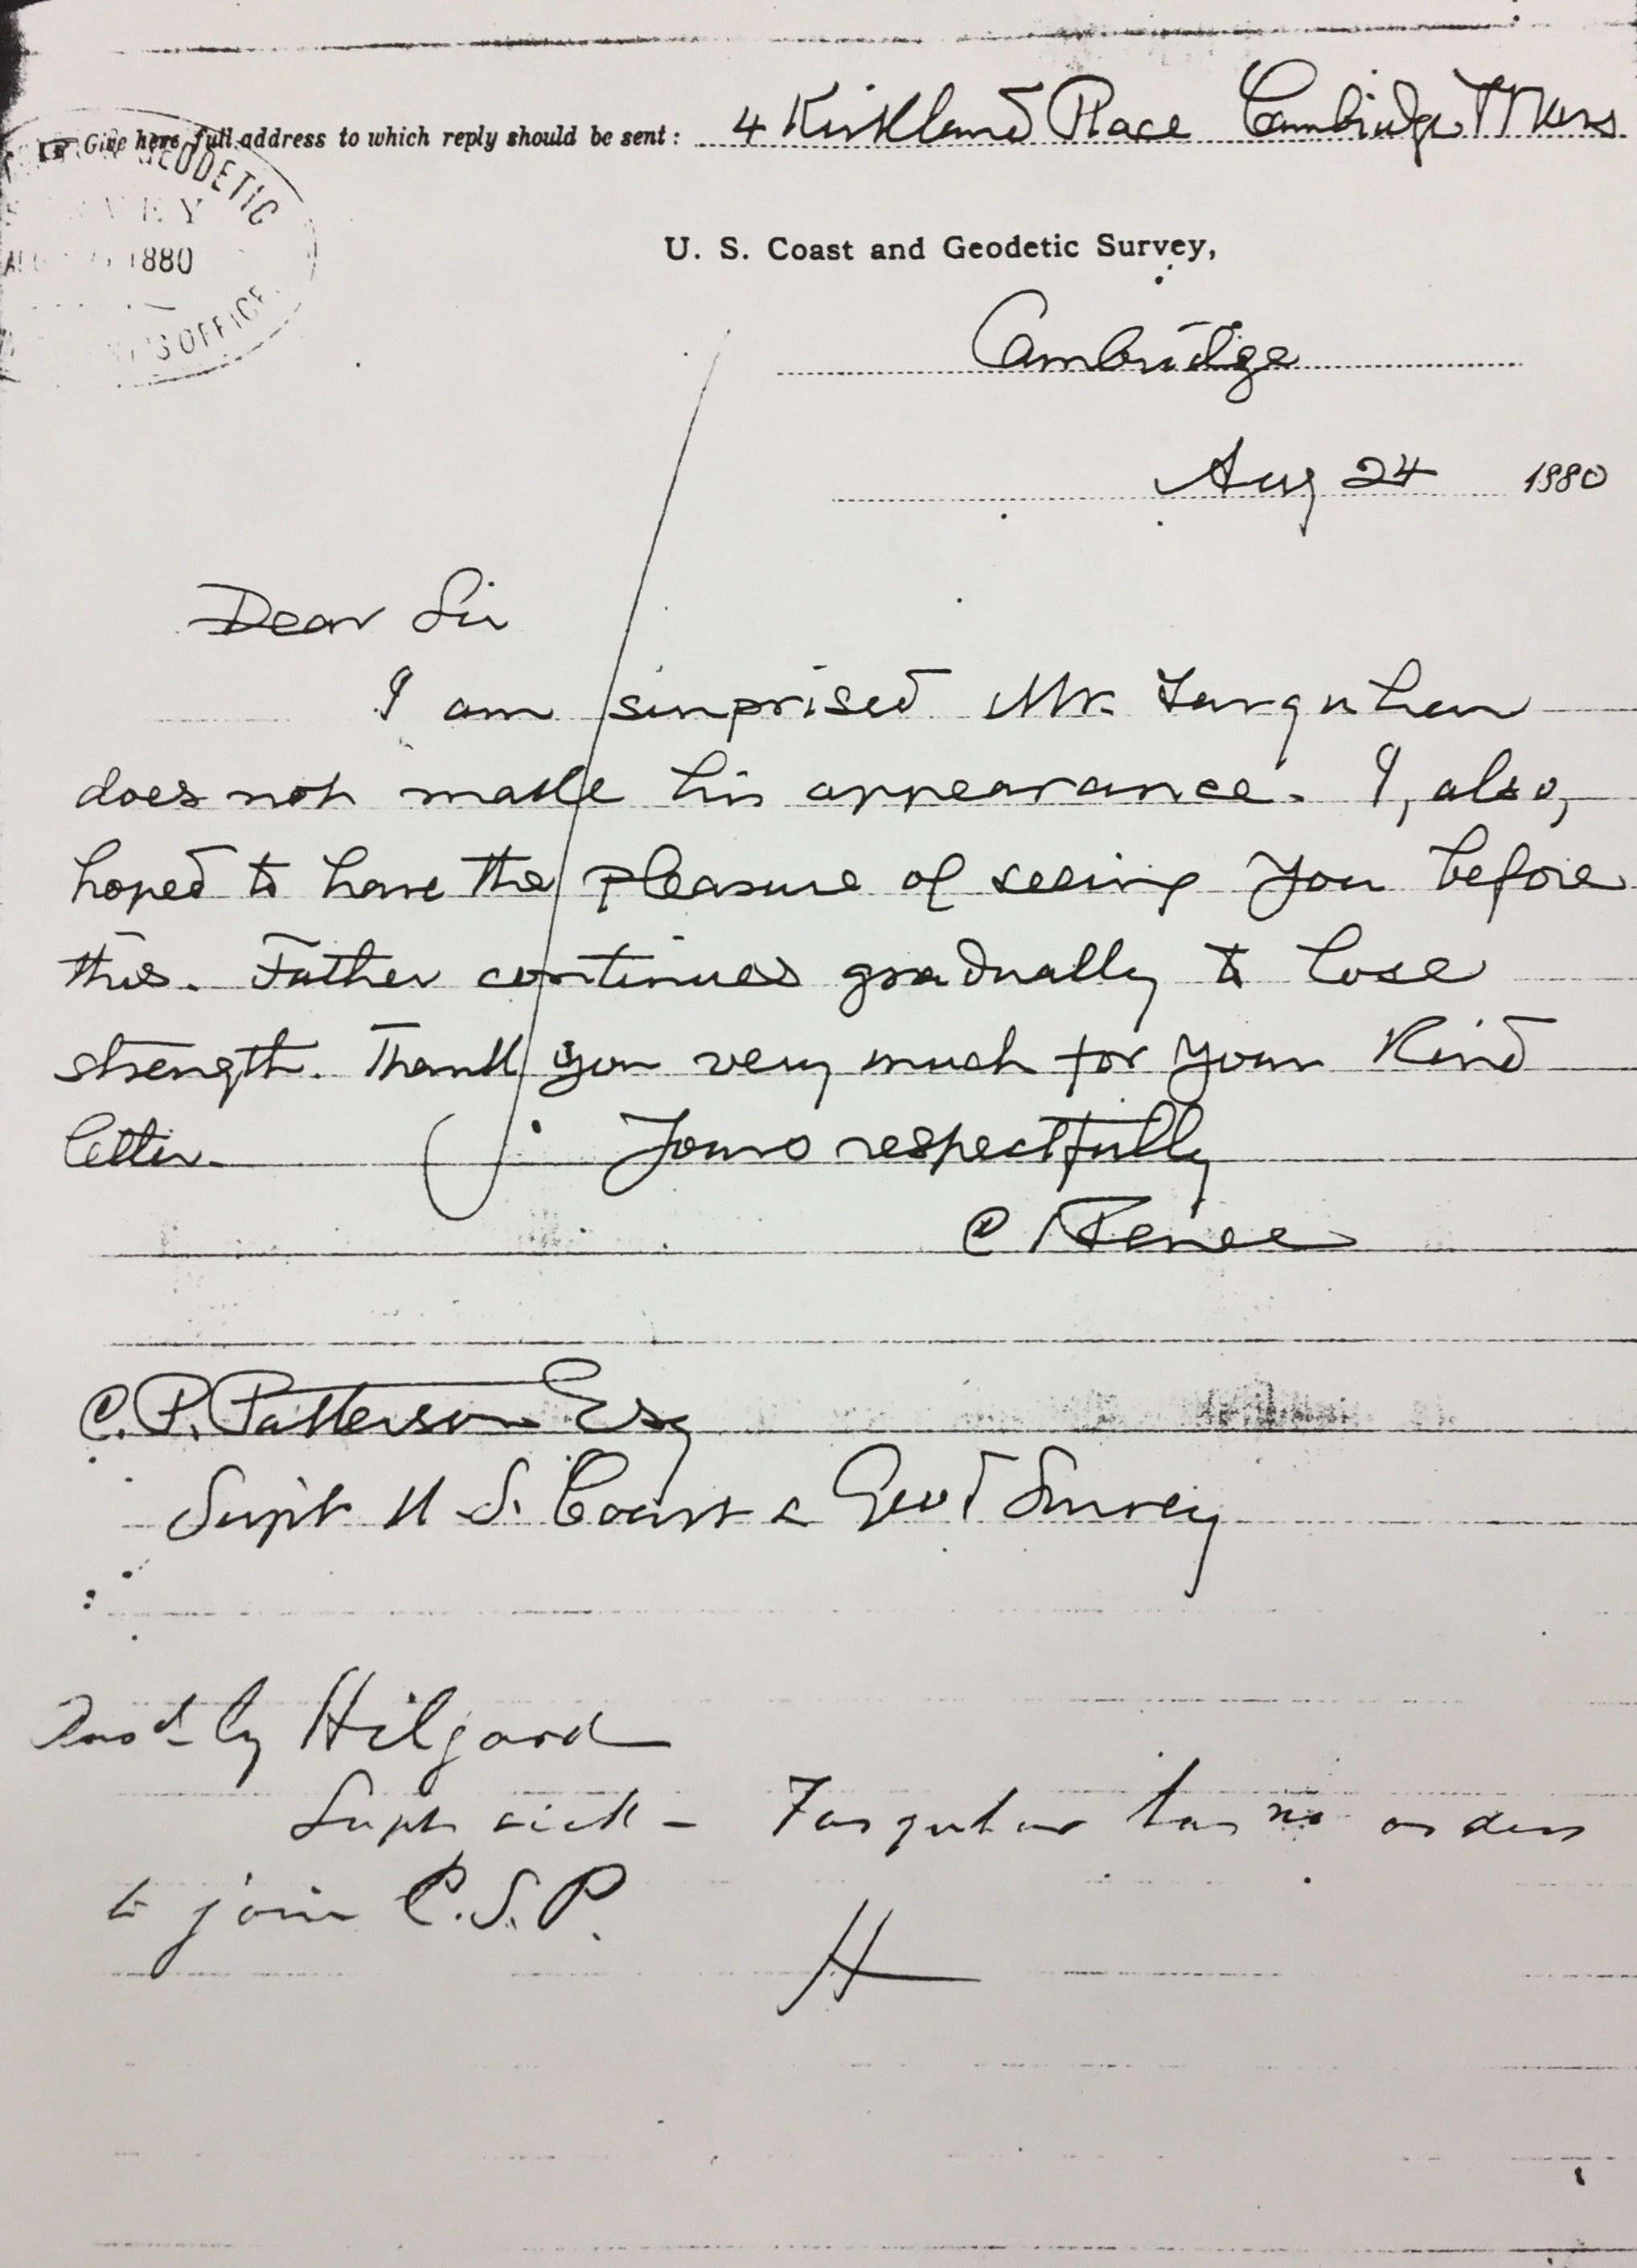 4 Kirkland Place Cambridge Mass
Give here full address to which reply should be sent:
GEODETIC
1880
OFFICE
U. S. Coast and Geodetic Survey,
Cambridge
Aug 24 1880
Dear Sir
I am surprised Mr. Farquhar
does not make his appearance. I, also,
hoped to have the pleasure of seeing you before
this. Father continues gradually to lose
strength. Thank you very much for your kind
letter.
Yours respectfully
C S Peirce
C. P. Patterson Esq
Supt U. S. Coast & Geod Survey
by Hilgard
Supt sick - Farquhar has no orders
to join C.S.P.
H